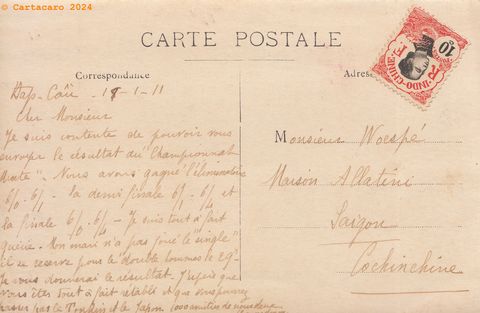 © Cartacaro 2024
CARTE POSTALE
Correspondance
Adres
10
INDO-CHINE
R F
Hap-Caü 18-1-11
Cher Monsieur
Je suis contente de pouvoir vous
envoyer le résultat du "Championnat
Mixte". Nous avons gagné l'éliminatoire
6/0 6/1 - la demi finale 6/1 6/4 et
la finale 6/0 6/4 - Je suis tout à fait
guérie. Mon mari n'a pas joué le "single"
il se réserve pour le double hommes
Je vous donnerai le résultat. J'espère que
vous êtes tout à fait rétabli et que vous pourrez
passer par le Tonkin et le Japon. 1000 amitiés de nous deux
Monsieur Woespé
Maison Allatini
Saïgon
Cochinchine